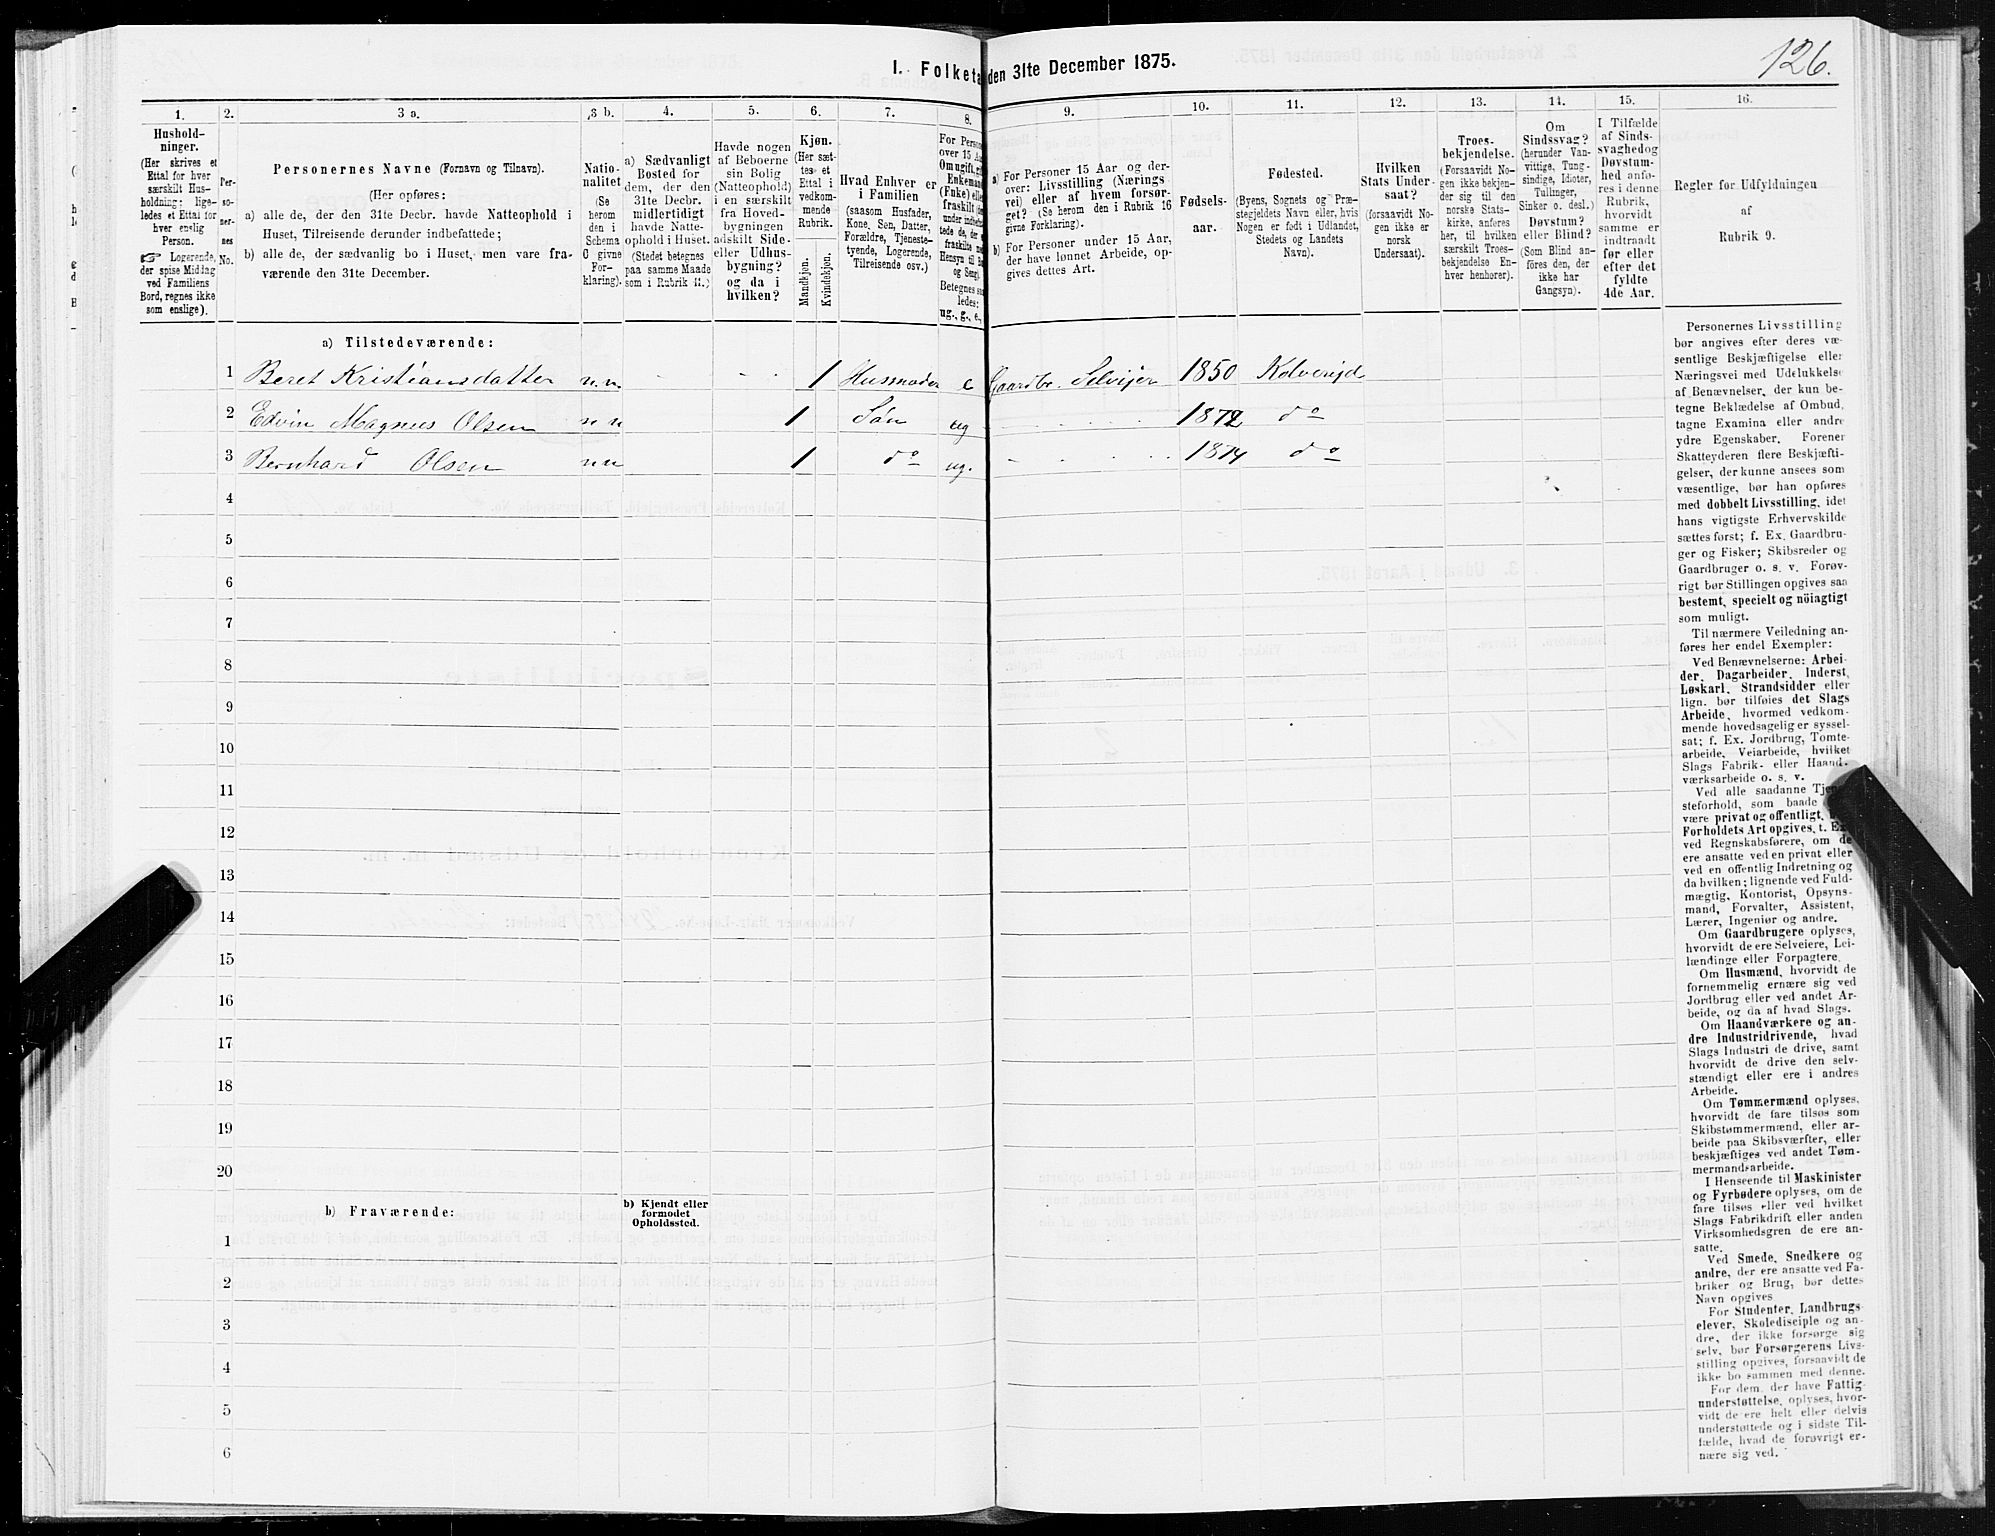 126.
I. Folketa den 31te December 1875.
1. 2. 3 a. 3 b. 4. 5. 6. 7. 8. 9. 10. 11. 12. 13. 14. 15. 16.
Hushold-
ninger.
(Her skrives et
Ettal for hver
særskilt Hus-
holdning; lige-
ledes et Ettal for
hver enslig
Person.
☞ Logerende,
der spise Middag
ved Familiens
Bord, regnes ikke
som enslige).
Per-
so-
ner-
nes
No.
Personernes Navne (Fornavn og Tilnavn).
(Her opføres:
a) alle de, der den 31te Decbr. havde Natteophold i
Huset, Tilreisende derunder indbefattede;
b) alle de, der sædvanlig bo i Huset, men vare fra-
værende den 31te December.
Natio-
nalitet
(Se
herom
den i
Schema
C givne
For-
klaring).
a) Sædvanligt
Bosted for
dem, der den
31te Decbr.
midlertidigt
havde Natte-
ophold i Huset.
(Stedet betegnes
paa samme Maade
som i Rubrik 11.)
Havde nogen
af Beboerne
sin Bolig
(Natteophold)
i en særskilt
fra Hoved-
bygningen
adskilt Side-
eller Udhus-
bygning?
og da i
hvilken?
Kjøn.
(Her sæt-
tes et
Ettal i
vedkom-
mende
Rubrik.
Mandkjøn.
Kvindekjøn.
Hvad Enhver er
i Familien
(saasom Husfader,
Kone, Søn, Datter,
Forældre, Tjeneste-
tyende, Logerende,
Tilreisende osv.)
For Person
over 15 Aa
Om ugift, gif
Enkeman
(Fnke) elle
fraskilt
under indbe
tede de, der
fraskilte
Hensyn til B
og Seng).
Betegnes sa
ledes:
ug., g., e.,
a) For Personer 15 Aar og der-
over: Livsstilling (Nærings-
vei) eller af hvem forsør-
get? (Se herom den i Rubrik 16
givne Forklaring).
b) For Personer under 15 Aar,
der have lønnet Arbeide, op-
gives dettes Art.
Fødsels-
aar.
Fødested.
(Byens, Sognets og Præ-
stegjeldets Navn eller, hvis
Nogen er født i Udlandet,
Stedets og Landets
Navn).
Hvilken
Stats Under-
saat?
(forsaavidt No-
gen ikke er
norsk
Undersaat).
Troes-
bekjendelse.
(Forsaavidt No-
gen ikke bekjen-
der sig til den
norske Stats-
kirke, anføres
her, til hvilken
særskilt Troes-
bekjendelse En-
hver henhorer).
Om
Sindssvag?
(herunder Van-
vittige, Tung-
sindige, Idioter,
Tullinger,
Sinker o. desl.)
Døvstum?
eller Blind?
(Som Blind an-
føres den, der
ikke har
Gangsyn).
I Tilfælde
af Sinds-
svaghed og
Døvstum-
hed anfø-
res i denne
Rubrik,
hvorvidt
samme er
indtraadt
før eller
efter det
fyldte
4de Aar.
Regler for Udfyldningen
af
Rubrik 9.
a) Tilstedeværende:
1 Beret Kristiansdatter n.n. 1 Husmoder e Gaardbr. Selveier 1850 Kolvereid
2 Edvin Magnus Olsen n n 1 Søn ug 1872 do
3 Bernhard Olsen n.n 1 do ug. 1874 do
4
5
6
7
8
9
10
11
12
13
14
15
16
17
18
19
20
b) Fraværende:
b) Kjendt eller
formodet
Opholdssted.
1
2
3
4
5
6
Personernes Livsstilling
bør angives efter deres væ-
sentlige Beskjæftigelse eller
Næringsvei med Udelukkelse
af Benævnelser, der kun be-
tegne Beklædelse af Ombud,
tagne Examina eller andre
ydre Egenskaber. Forener
Skatteyderen flere Beskjæfti-
gelser, der kunne ansees som
væsentlige, bør han opføres
med dobbelt Livsstilling, idet
hans vigtigste Erhvervskilde
sættes først; f. Ex. Gaardbru-
ger og Fisker; Skibsreder og
Gaardbruger o. s. v. Forøv-
rigt bør Stillingen opgives saa
bestemt, specielt og nöiagtigt
som muligt.
Til nærmere Veiledning an-
føres her endel Exempler:
Ved Benævnelserne: Arbei-
der, Dagarbeider, Inderst,
Løskarl, Strandsidder eller
lign. bør tilføies det Slags
Arbeide, hvormed vedkom-
mende hovedsagelig er syssel-
sat; f. Ex. Jordbrug, Tomte-
arbeide, Veiarbeide, hvilket
Slags Fabrik- eller Haand-
værksarbeide o. s. v.
Ved alle saadanne Tjene
steforhold, som baade
være privat og offentligt,
Forholdets Art opgives, t. Ex
ved Regnskabsførere, om de
ere ansatte ved en privat eller
ved en offentlig Indretning og
da hvilken; lignende ved Fuld-
mægtig, Kontorist, Opsyns-
mand, Forvalter, Assistent,
Lærer, Ingeniør og andre.
Om Gaardbrugere oplyses,
hvorvidt de ere Selveiere, Lei-
lændinge eller Forpagtere.
Om Husmænd, hvorvidt de
fornemmelig ernære sig ved
Jordbrug eller ved andet Ar-
beide, og da af hvad Slags.
Om Haandværkere og an-
dre Industridrivende, hvad
Slags Industri de drive, samt
hvorvidt de drive den selv-
stændigt eller ere i andres
Arbeide.
Om Tømmermænd oplyses,
hvorvidt de fare tilsøs som
Skibstømmermænd, eller ar-
beide paa Skibsværfter, eller
beskjæftiges ved andet Tøm-
mermandsarbeide.
I Henseende til Maskinister
og Fyrbødere oplyses, om de
fare tilsøs eller ved hvilket
Slags Fabrikdrift eller anden
Virksomhedsgren de ere an-
satte.
Ved Smede, Snedkere og
andre, der ere ansatte ved Fa-
briker og Brug, bør dettes
Navn opgives
For Studenter, Landbrugs-
elever, Skoledisciple og an-
dre, der ikke forsørge sig
selv, bør Forsørgerens Livs-
stilling opgives, forsaavidt de
ikke bo sammen med denne.
For dem, der have Fattig-
understøttelse, oplyses, hvor-
vidt de ere helt eller delvis
understøttede og i sidste Til-
fælde, hvad de forøvrigt er-
nære sig ved.